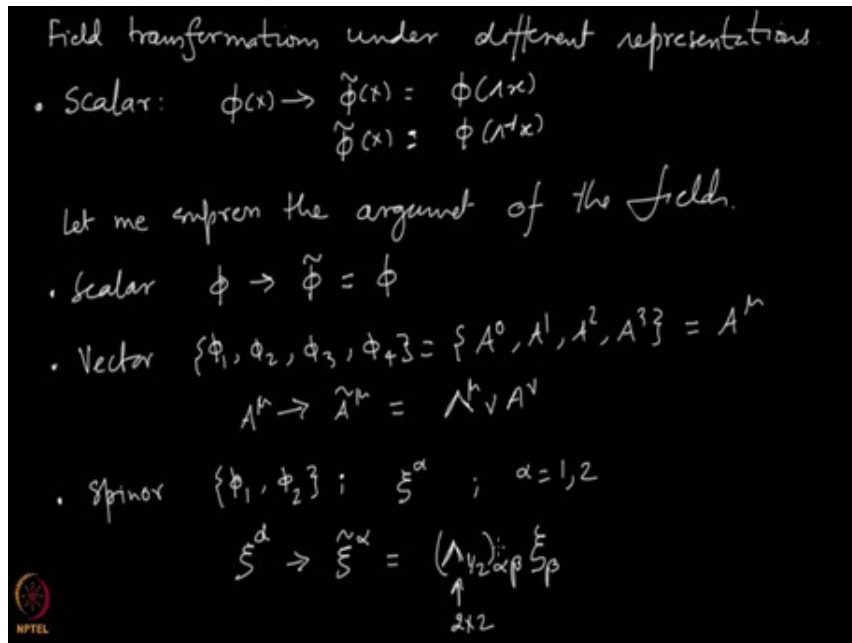 Field transformations under different representations.
• Scalar: ϕ(x) → ϕ̃(x) = ϕ(Λx)
ϕ̃(x) = ϕ(Λ⁻¹x)
Let me supress the argumet of the fields.
• Scalar ϕ → ϕ̃ = ϕ
• Vector {ϕ₁, ϕ₂, ϕ₃, ϕ₄} = {A⁰, A¹, A², A³} = A^μ
A^μ → Ã^μ = Λ^μ_ν A^ν
• Spinor {ϕ₁, ϕ₂} ; ξ^α ; α = 1,2
ξ^α → ξ̃^α = (Λ_{1/2})_{αβ} ξ_β
↑
2x2
NPTEL